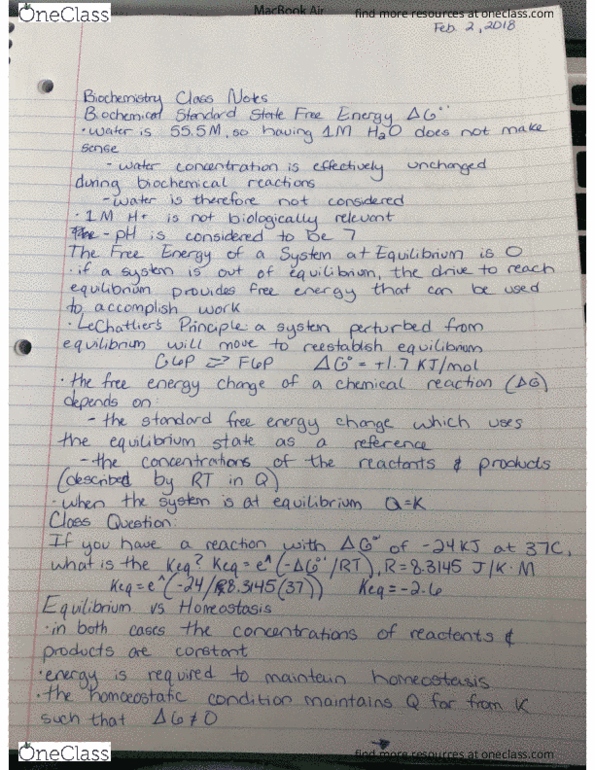 OneClass
MacBook Air
find more resources at oneclass.com
Feb. 2, 2018
Biochemistry Class Notes
Biochemical Standard State Free Energy ΔG°'
· water is 55.5M, so having 1M H2O does not make
sense
- water concentration is effectively unchanged
during biochemical reactions
- water is therefore not considered
· 1M H+ is not biologically relevent
- pH is considered to be 7
The Free Energy of a System at Equilibrium is 0
· if a system is out of equilibrium, the drive to reach
equilibrium provides free energy that can be used
to accomplish work
· LeChatlier's Principle: a system perturbed from
equilibrium will move to reestablish equilibrium
G6P ⇌ F6P ΔG° = +1.7 KJ/mol
· the free energy change of a chemical reaction (ΔG)
depends on:
- the standard free energy change which uses
the equilibrium state as a reference
- the concentrations of the reactants & products
(described by RT in Q)
· when the system is at equilibrium Q=K
Class Question:
If you have a reaction with ΔG°' of -24KJ at 37C,
what is the Keq? Keq = e^(-ΔG°'/RT), R=8.3145 J/K·M
Keq = e^(-24/8.3145(37)) Keq = -2.6
Equilibrium vs Homeostasis
· in both cases the concentrations of reactants &
products are constant
· energy is required to maintain homeostasis
· the homoeostatic condition maintains Q far from K
such that ΔG ≠ 0
OneClass
find more resources at oneclass.com